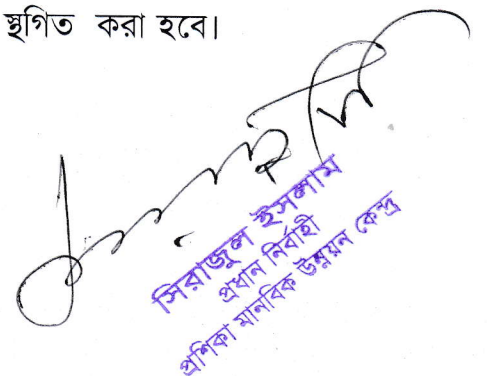 স্থগিত করা হবে।
সিরাজুল ইসলাম
প্রধান নির্বাহী
প্রশিকা মানবিক উন্নয়ন কেন্দ্র